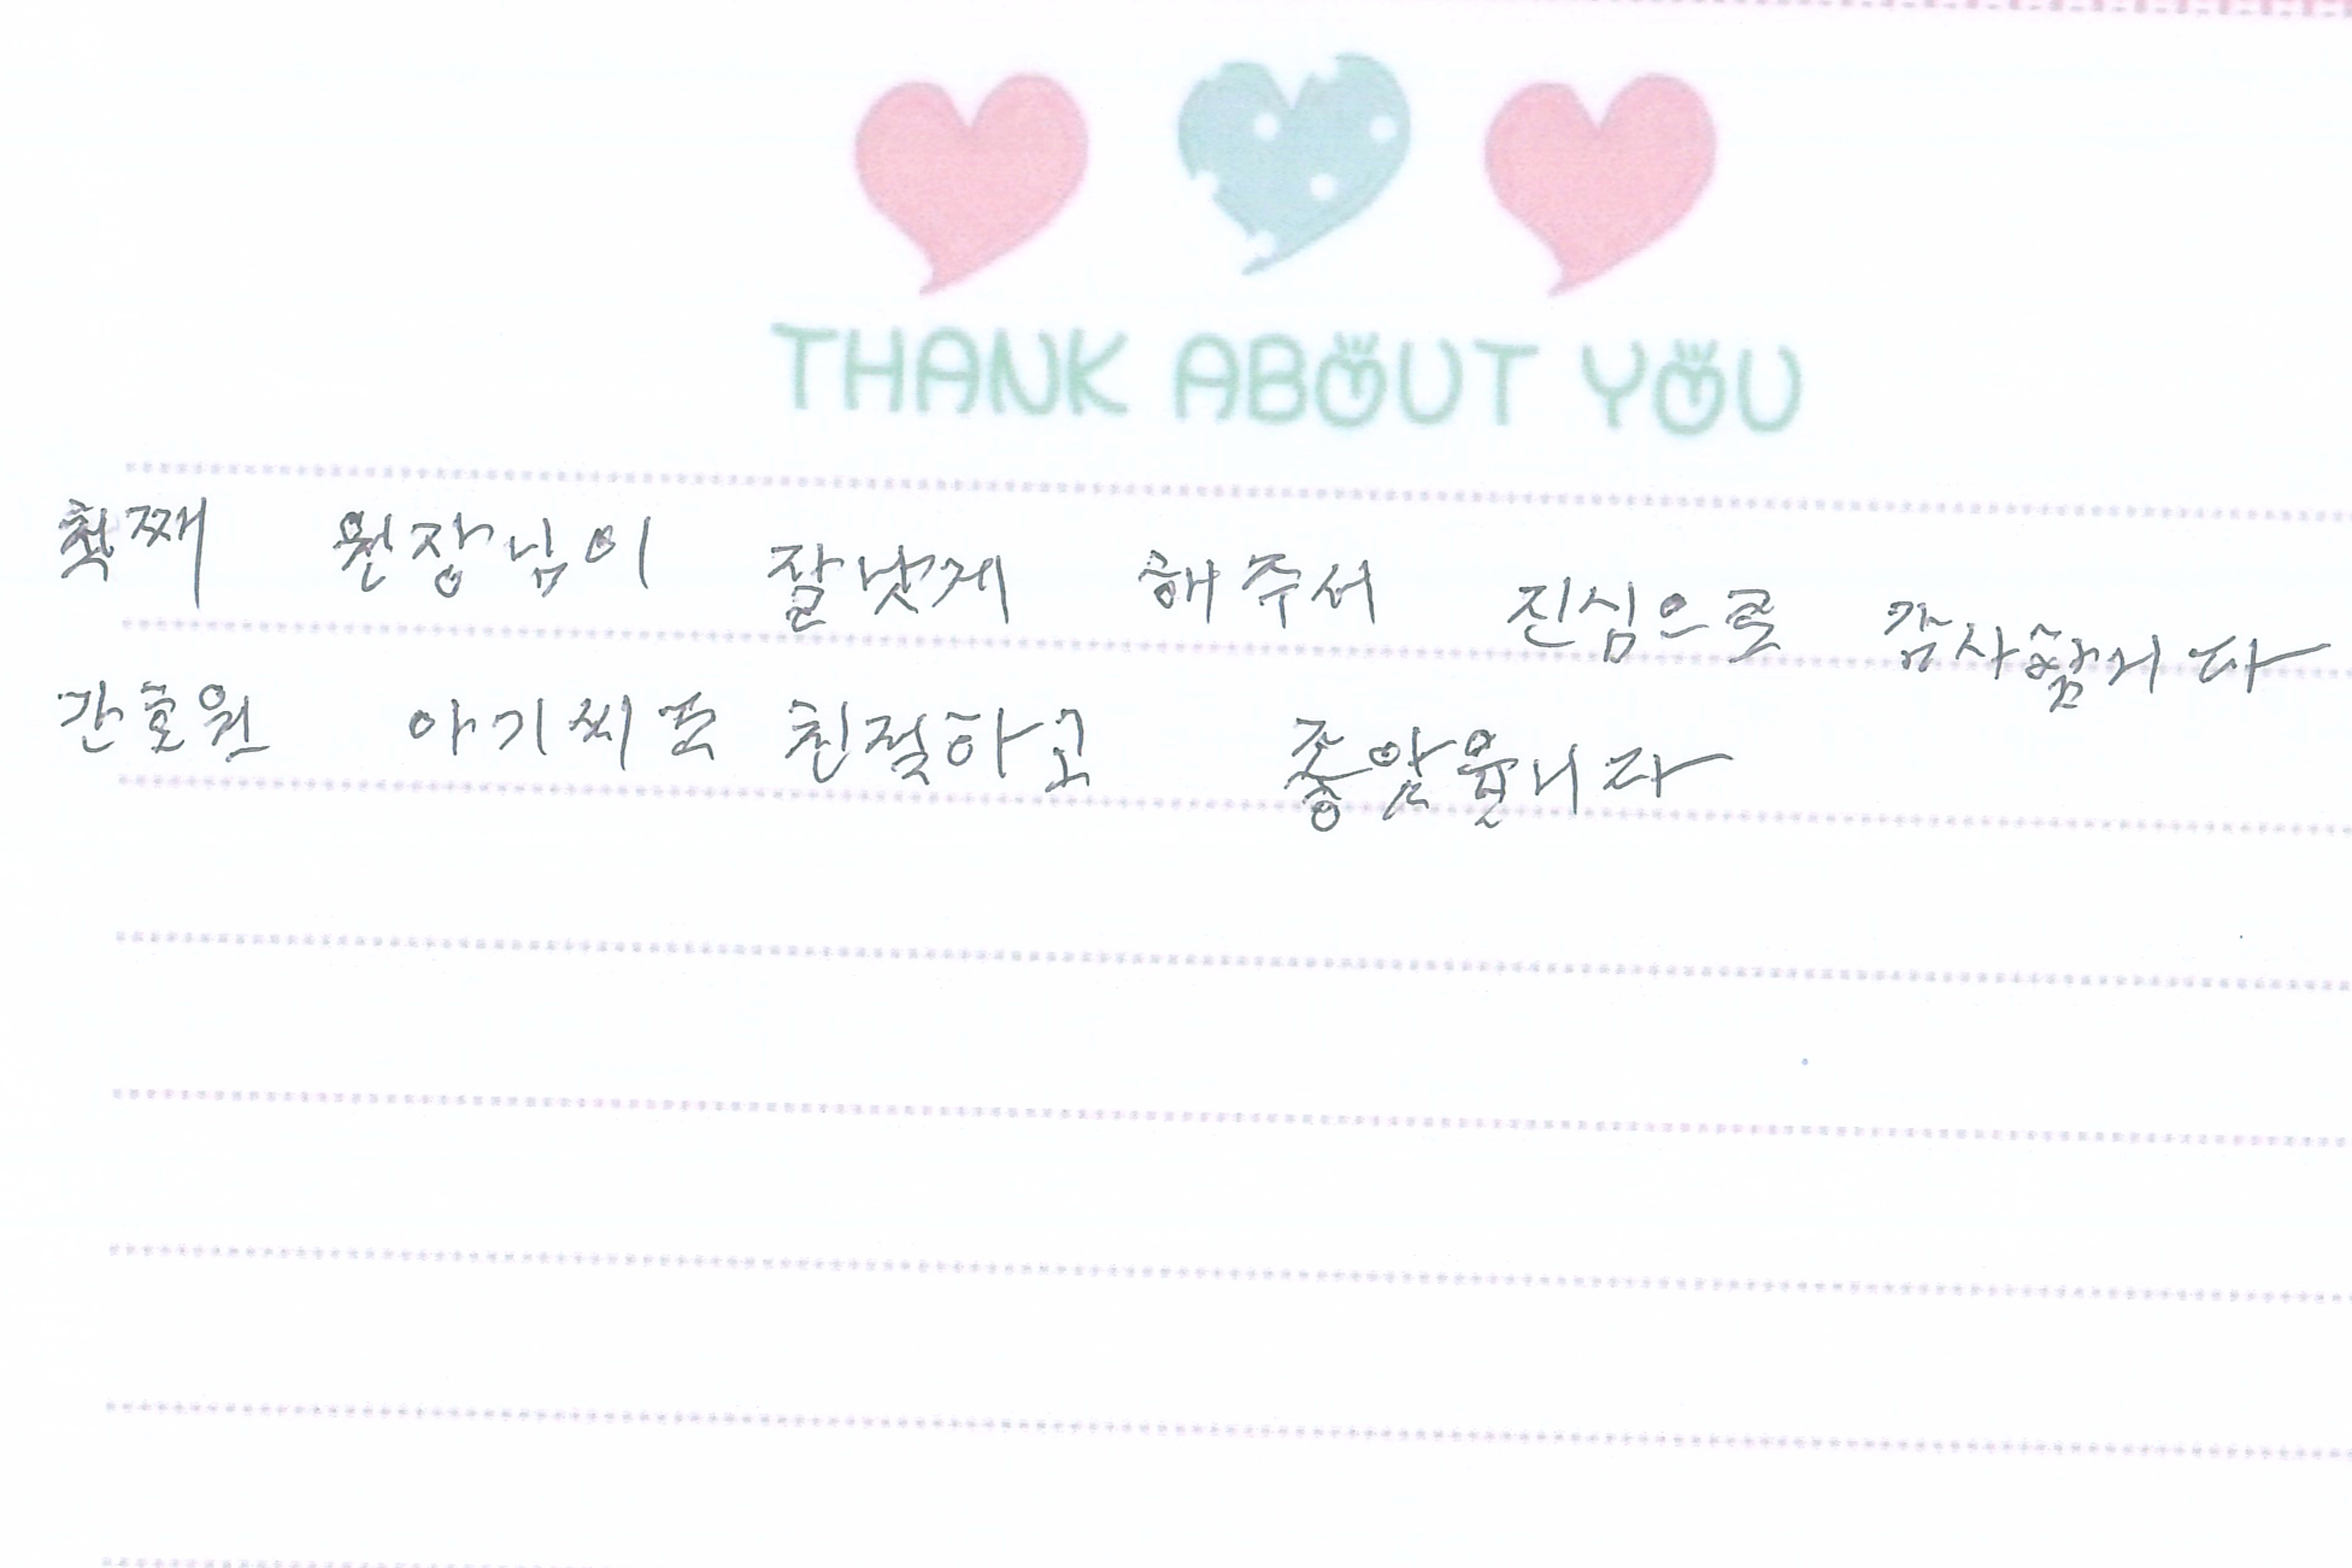 THANK ABOUT YOU
첫째 원장님이 잘낫게 해주서 진심으로 감사합니다
간호원 아기씨도 친절하고 좋았읍니다